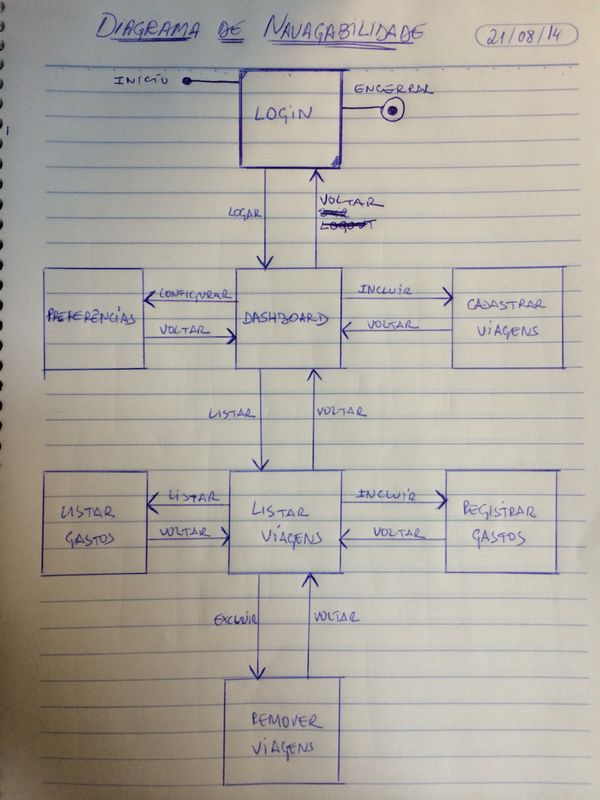 DIAGRAMA DE NAVAGABILIDADE
21/08/14
INICIO
LOGIN
ENCERRAR
LOGAR
VOLTAR
LOGOUT
PREFERÊNCIAS
CONFIGURAR
VOLTAR
DASHBOARD
INCLUIR
VOLTAR
CADASTRAR
VIAGENS
LISTAR
VOLTAR
LISTAR
GASTOS
LISTAR
VOLTAR
LISTAR
VIAGENS
INCLUIR
VOLTAR
REGISTRAR
GASTOS
EXCLUIR
VOLTAR
REMOVER
VIAGENS